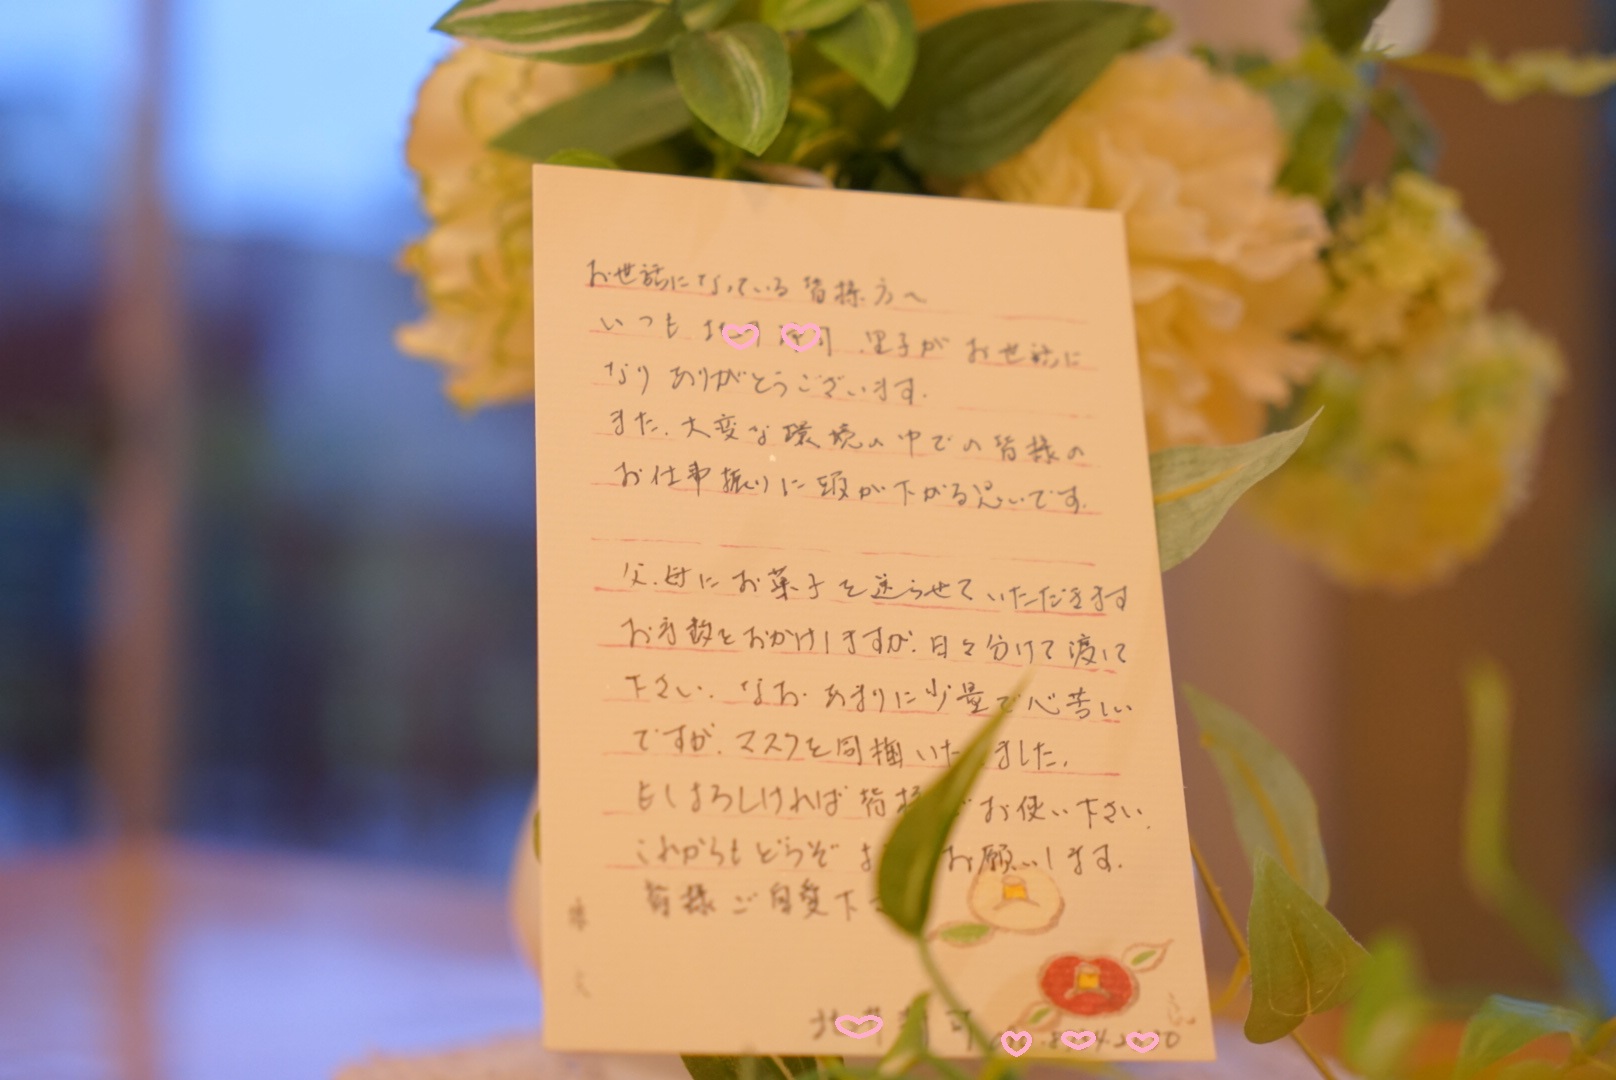 お世話になっている皆様方へ
いつも 里子がお世話に
なりありがとうございます.
また.大変な環境の中での皆様の
お仕事振りに頭が下がる思いです.
父.母にお菓子を送らせていただきます
お手数をおかけしますが.日々分けて渡して
下さい.なお.あまりに少量で心苦しい
ですが.マスクを同梱いた ました.
もしよろしければ皆様 お使い下さい.
これからもどうぞ お願いします.
皆様ご自愛下